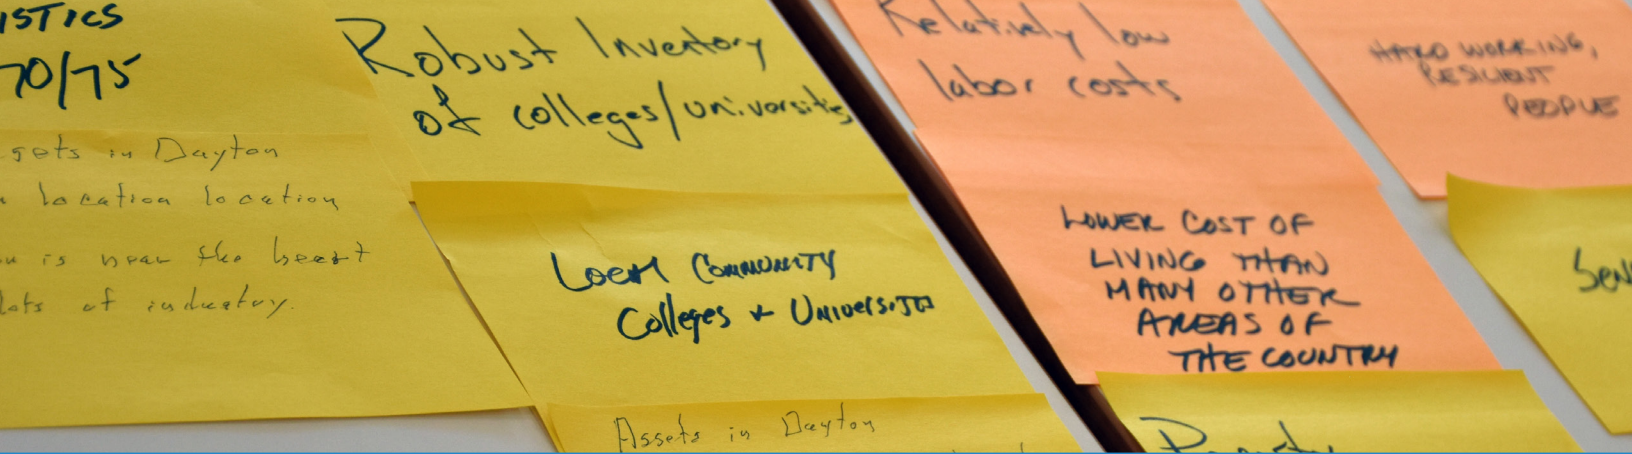 ISTICS
70/75
sets in Dayton
location location
is near the heart
lots of industry.
Robust Inventory
of colleges/universities
Local Community
Colleges + Universities
Assets in Dayton
Relatively low
labor costs
LOWER COST OF
LIVING THAN
MANY OTHER
AREAS OF
THE COUNTRY
HARD WORKING,
RESILIENT
PEOPLE